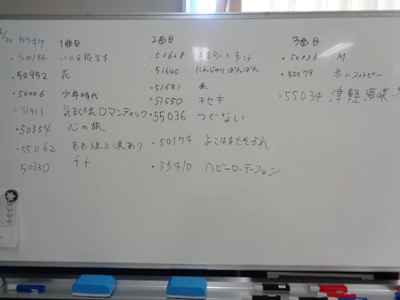 カラオケ
1曲目
いい日旅立ち
.50952 花
.50006 少年時代
気まぐれロマンティック
.50354 心の旅
.55062 あゝ人生に涙あり
50230 ff
2曲目
.51628
.51640 にんじゃりばんばん
.51631 糸
.51550 キセキ
55036 つぐない
.50174 よこはまたそがれ
.55410 ヘビーローテーション
3曲目
M
.50079
.55034 津軽海峡